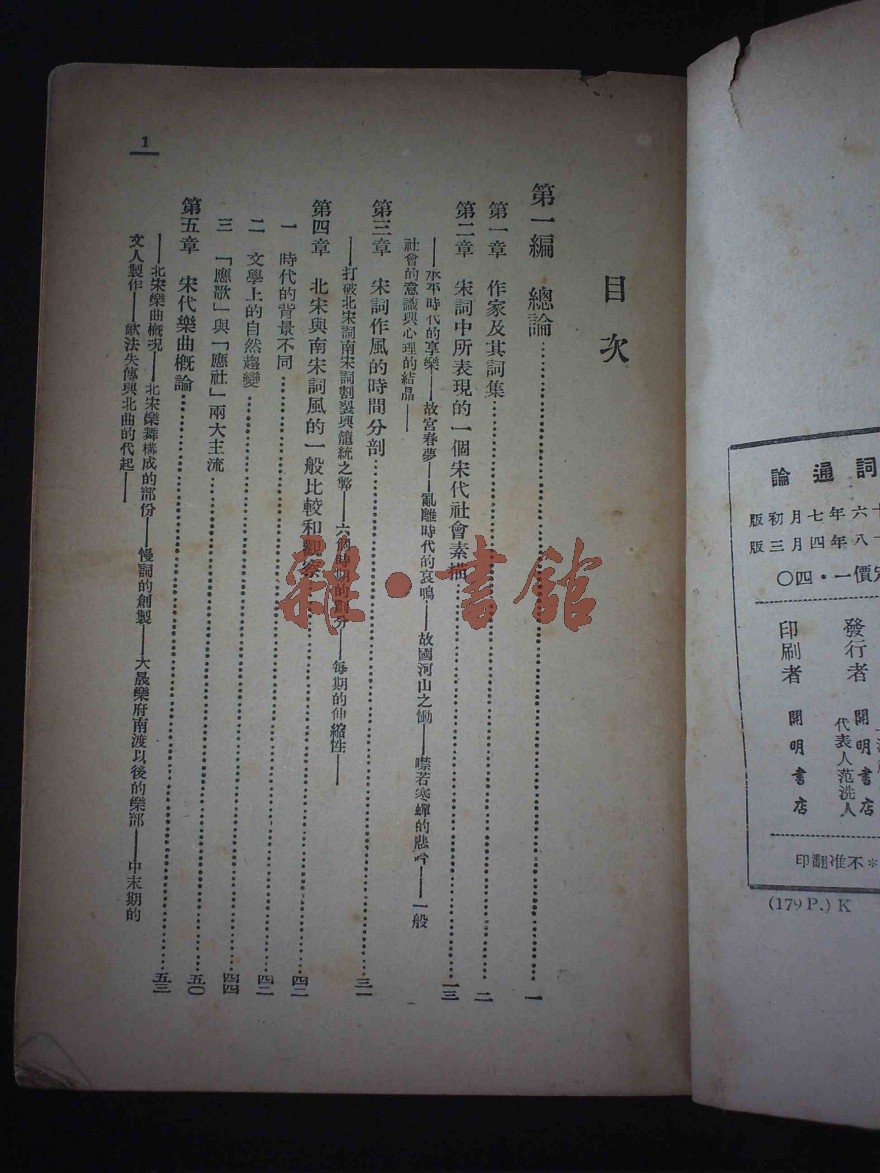 詞通論
十六年七月初版
十八年四月三版
定價一·四〇
發行者
代表人范洗人
開明書店
印刷者
開明書店
*不准翻印
(179 P.) K
目次
第一編 總論……一
第一章 作家及其詞集……二
第二章 宋詞中所表現的一個宋代社會素描……一三
——承平時代的享樂——故宮春夢——亂離時代的哀鳴——故國河山之慟——噤若寒蟬的悲吟——一般
社會的意識與心理的結晶——
第三章 宋詞作風的時間分剖……三一
——打破北宋詞南宋詞割裂與籠統之弊——六個時期的劃分——每期的伸縮性——
第四章 北宋與南宋詞風的一般比較和觀察……四二
一 時代的背景不同……四二
二 文學上的自然趨變……四四
三 「應歌」與「應社」兩大主流……五〇
第五章 宋代樂曲概論……五三
——北宋樂曲概況——北宋樂舞構成的部份——慢詞的創製——大晟樂府南渡以後的樂部——中末期的
文人製作——歌法失傳與北曲的代起——
1
雜·書館